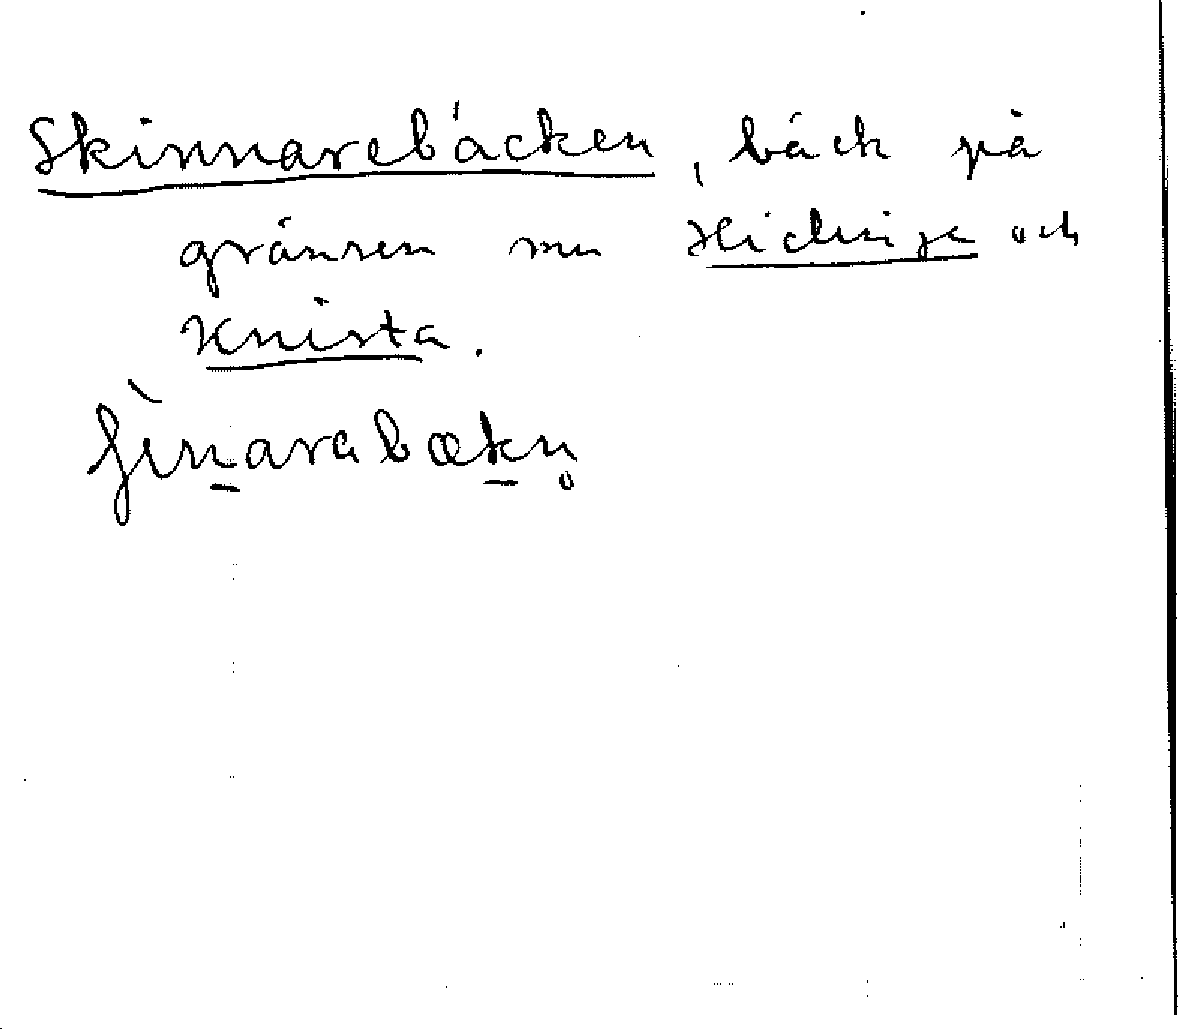 Skinnarebäcken, bäck på
gränsen mu Hidinge och
Knista.
fìn̲arabæk̲n̥